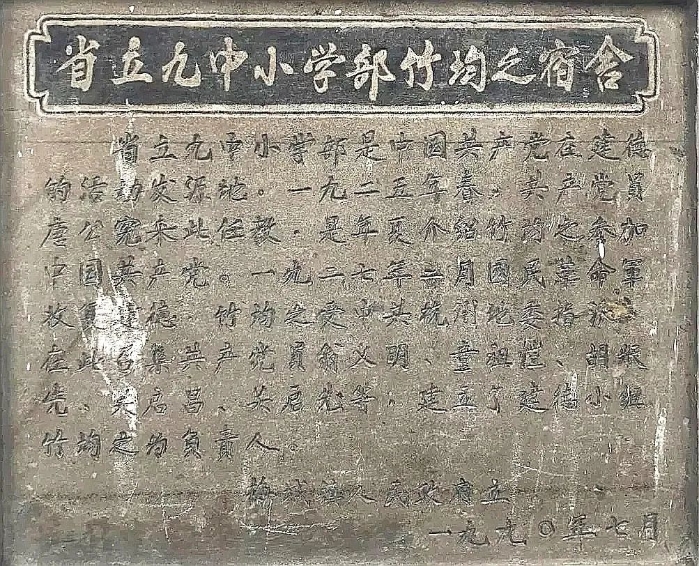 省立九中小学部竹均之宿舍
省立九中小学部是中国共产党在建德
的活动发源地。一九二五年春，共产党员
唐公宪来此任教。是年夏介绍竹均之参加
中国共产党。一九二七年二月國民革命軍
收复建德，竹均之受中共杭州地委指派
在此召集共产党員翁义明、童祖恺、胡振
先、吴启昌、英启先等，建立了建德小组
竹均之为负责人。
梅城镇人民政府立
一九九〇年七月